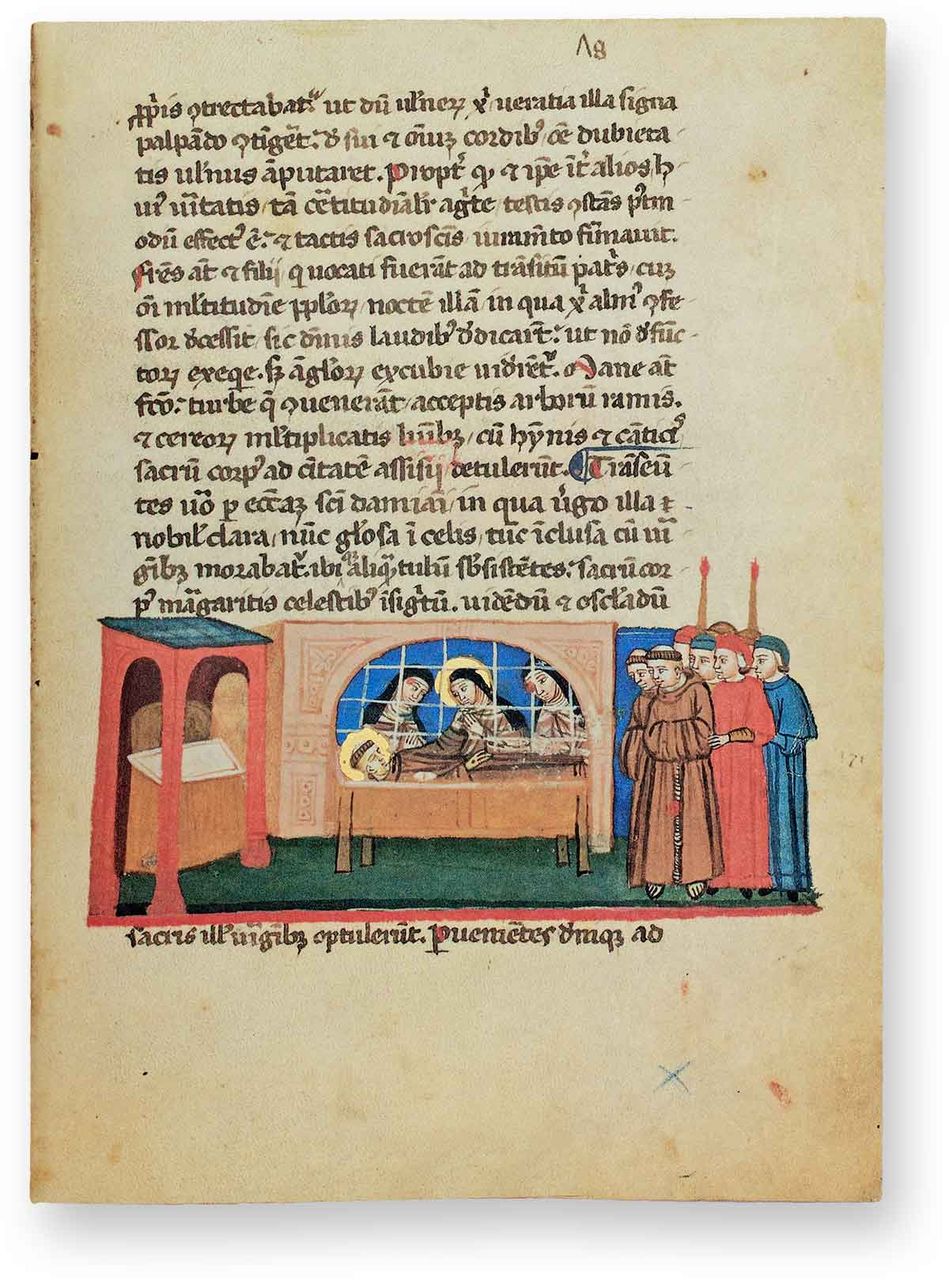 ꝓpriis ꝯtrectabat᷑ ut dū uulneꝝ xͥ ueratia illa signa
palpādo ꝯtīgēt. d̄ sui ⁊ oīuꝫ cordibꝰ oē dubieta
tis ulnus āputaret. Propt̄ qͥ ⁊ ip̄e īt̄ alios h
uiꝰ ūitatis tā c̄titudīalr̄ agͥte testis ꝯstās pꝰtm
odū effectꝰ ē. ⁊ tactis sacrosc̄is iuram̄to firmauit.
Fr̄es at̄ ⁊ filij q uocati fuerāt ad trāsitū patͥs cuꝫ
oī ml̄titudīe pplōꝝ noctē illā in qua xͥ almꝰ ꝯfe
ssor dec̄essit sic diuīs laudibꝰ dedicar̄t. ut nō defūc
toꝝ exeq̄e. sꝫ āglōꝝ excubie uider̄et᷑. Mane at̄
fcō. turbe q̄ ꝯuenerāt acceptis arborū ramis.
⁊ cereoꝝ ml̄tiplicatis luībꝫ cū hȳnis ⁊ cāticꝭ
sacrū corpꝰ ad ciͥtatē assisij detulerūt. Trāseū
tes ūo p ecc̄aꝫ sc̄i damiāi in qua uͥgo illa
nobil̕ clara nūc glōsa ī celis tūc īclusa cū uͥ
gībꝫ morabat᷑. ibi aliqͣtulū sb̄sistētes. sacrū cor
pꝰ margaritis celestibꝰ īsigͥtū. uidēdū ⁊ osclādū
sacris ill̕ uͥgībꝫ optulerūt. Pueniētes deniqꝫ ad